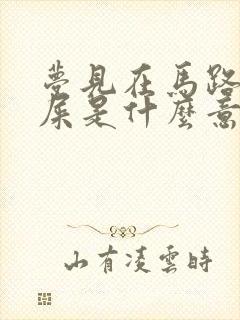 夢見在馬路
屎是什麼意
山有凌雲時